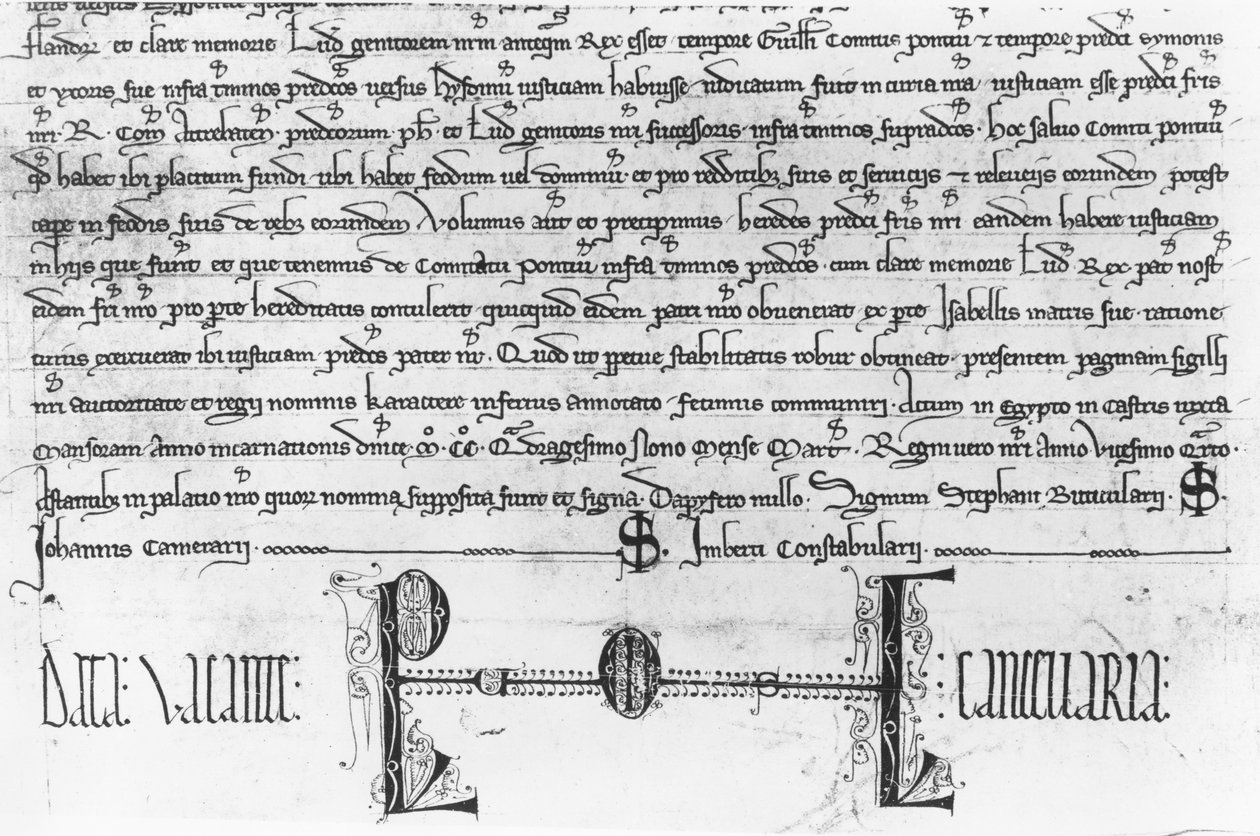 flandrie et clare memorie Lud genitorem nrm anteqm Rex esset tempore Guilli Comitis pontiui & tempore predci symonis
et vxoris sue infra tminos predcos uersus hysdinu iusticiam habuisse iudicatum fuit in curia nra iusticiam esse predci fris
nri R. Com Attrebaten predcorum ph et Lud genitoris nri successoris infra tminos supradcos. hoc saluo Comiti pontiui
qd habet ibi placitum fundi ubi habet feodum uel dominiu et pro redditibz suis et seruiciis & releueiis eorundem potest
cape in feodis suis de rebz eorundem. Volumus aut et precipimus heredes predci fris nri eandem habere iusticiam
in hiis que sunt et que tenemus de Comitatu pontiui infra tminos predcos cum clare memorie Lud Rex pat nost
eidem fri nro pro pte hereditatis contulerit quicquid eidem patri nro obuenerat ex pte Isabellis matris sue ratione
cuius exercuerat ibi iusticiam predcs pater nr. Quod ut ppetue stabilitatis robur obtineat presentem paginam sigilli
nri auctoritate et regii nominis karactere inferius annotato fecimus communiri. Actum in Egypto in Castris iuxta
Mansoram Anno incarnationis dnice. M. CC. Qadragesimo Nono Mense Mart. Regni uero nri Anno Vicesimo Qrto.
Astantibz in palatio nro quorz nomina supposita sunt et signa. Dapifero nullo. Signum Stephani Buticularii. S.
Johannis Camerarii. S. Imberti Constabularii.
DATA VACANTE CANCELLARIA